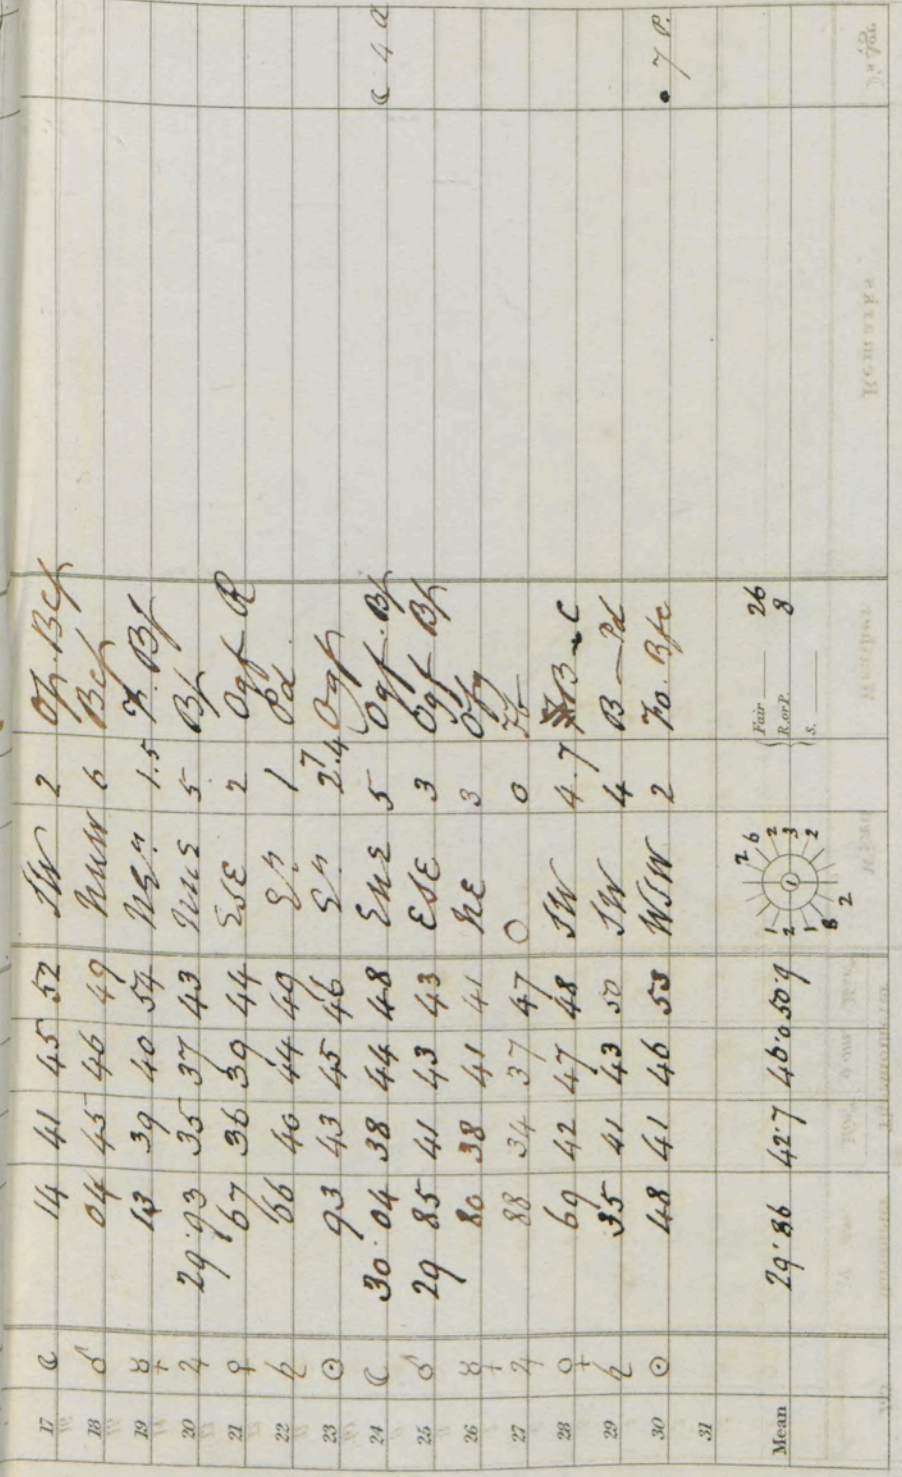 17 ☾ 14 41 45 52 SW 2 Of. Bcf
18 ♂ 04 45 46 49 NNW 6 Bcf
19 ☿ 13 39 40 54 NEn 1.5 F. Bf
20 ♃ 29.93 35 37 43 NNE 5 Bf
21 ♀ 67 36 39 44 ESE 2 Ogf R
22 ♄ 66 40 44 49 En 1 Pd
23 ☉ 93 43 45 46 En 2.4 7 Ogf
24 ☾ 30.04 38 44 48 ENE 5 Ogf. Bf ☾ 4 a
25 ♂ 29 85 41 43 43 ESE 3 Ogf Bf
26 ☿ 80 38 41 41 NE 3 Ofg
27 ♃ 88 34 37 47 O 0
28 ♀ 69 42 47 48 SW 4.7 B C
29 ♄ 35 41 43 50 SW 4 B — Pd
30 ☉ 48 41 46 53 WSW 2 Fo. Bfc • 7 P.
31
Mean 29.86 42.7 46.0 50.9 Fair 26
R. or P. 8
S.